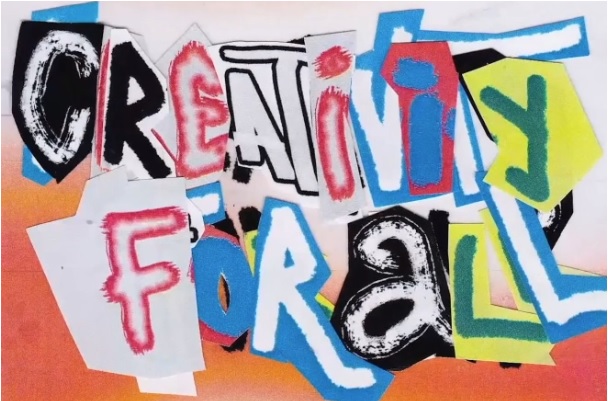 CREATiViTy
FORaLL